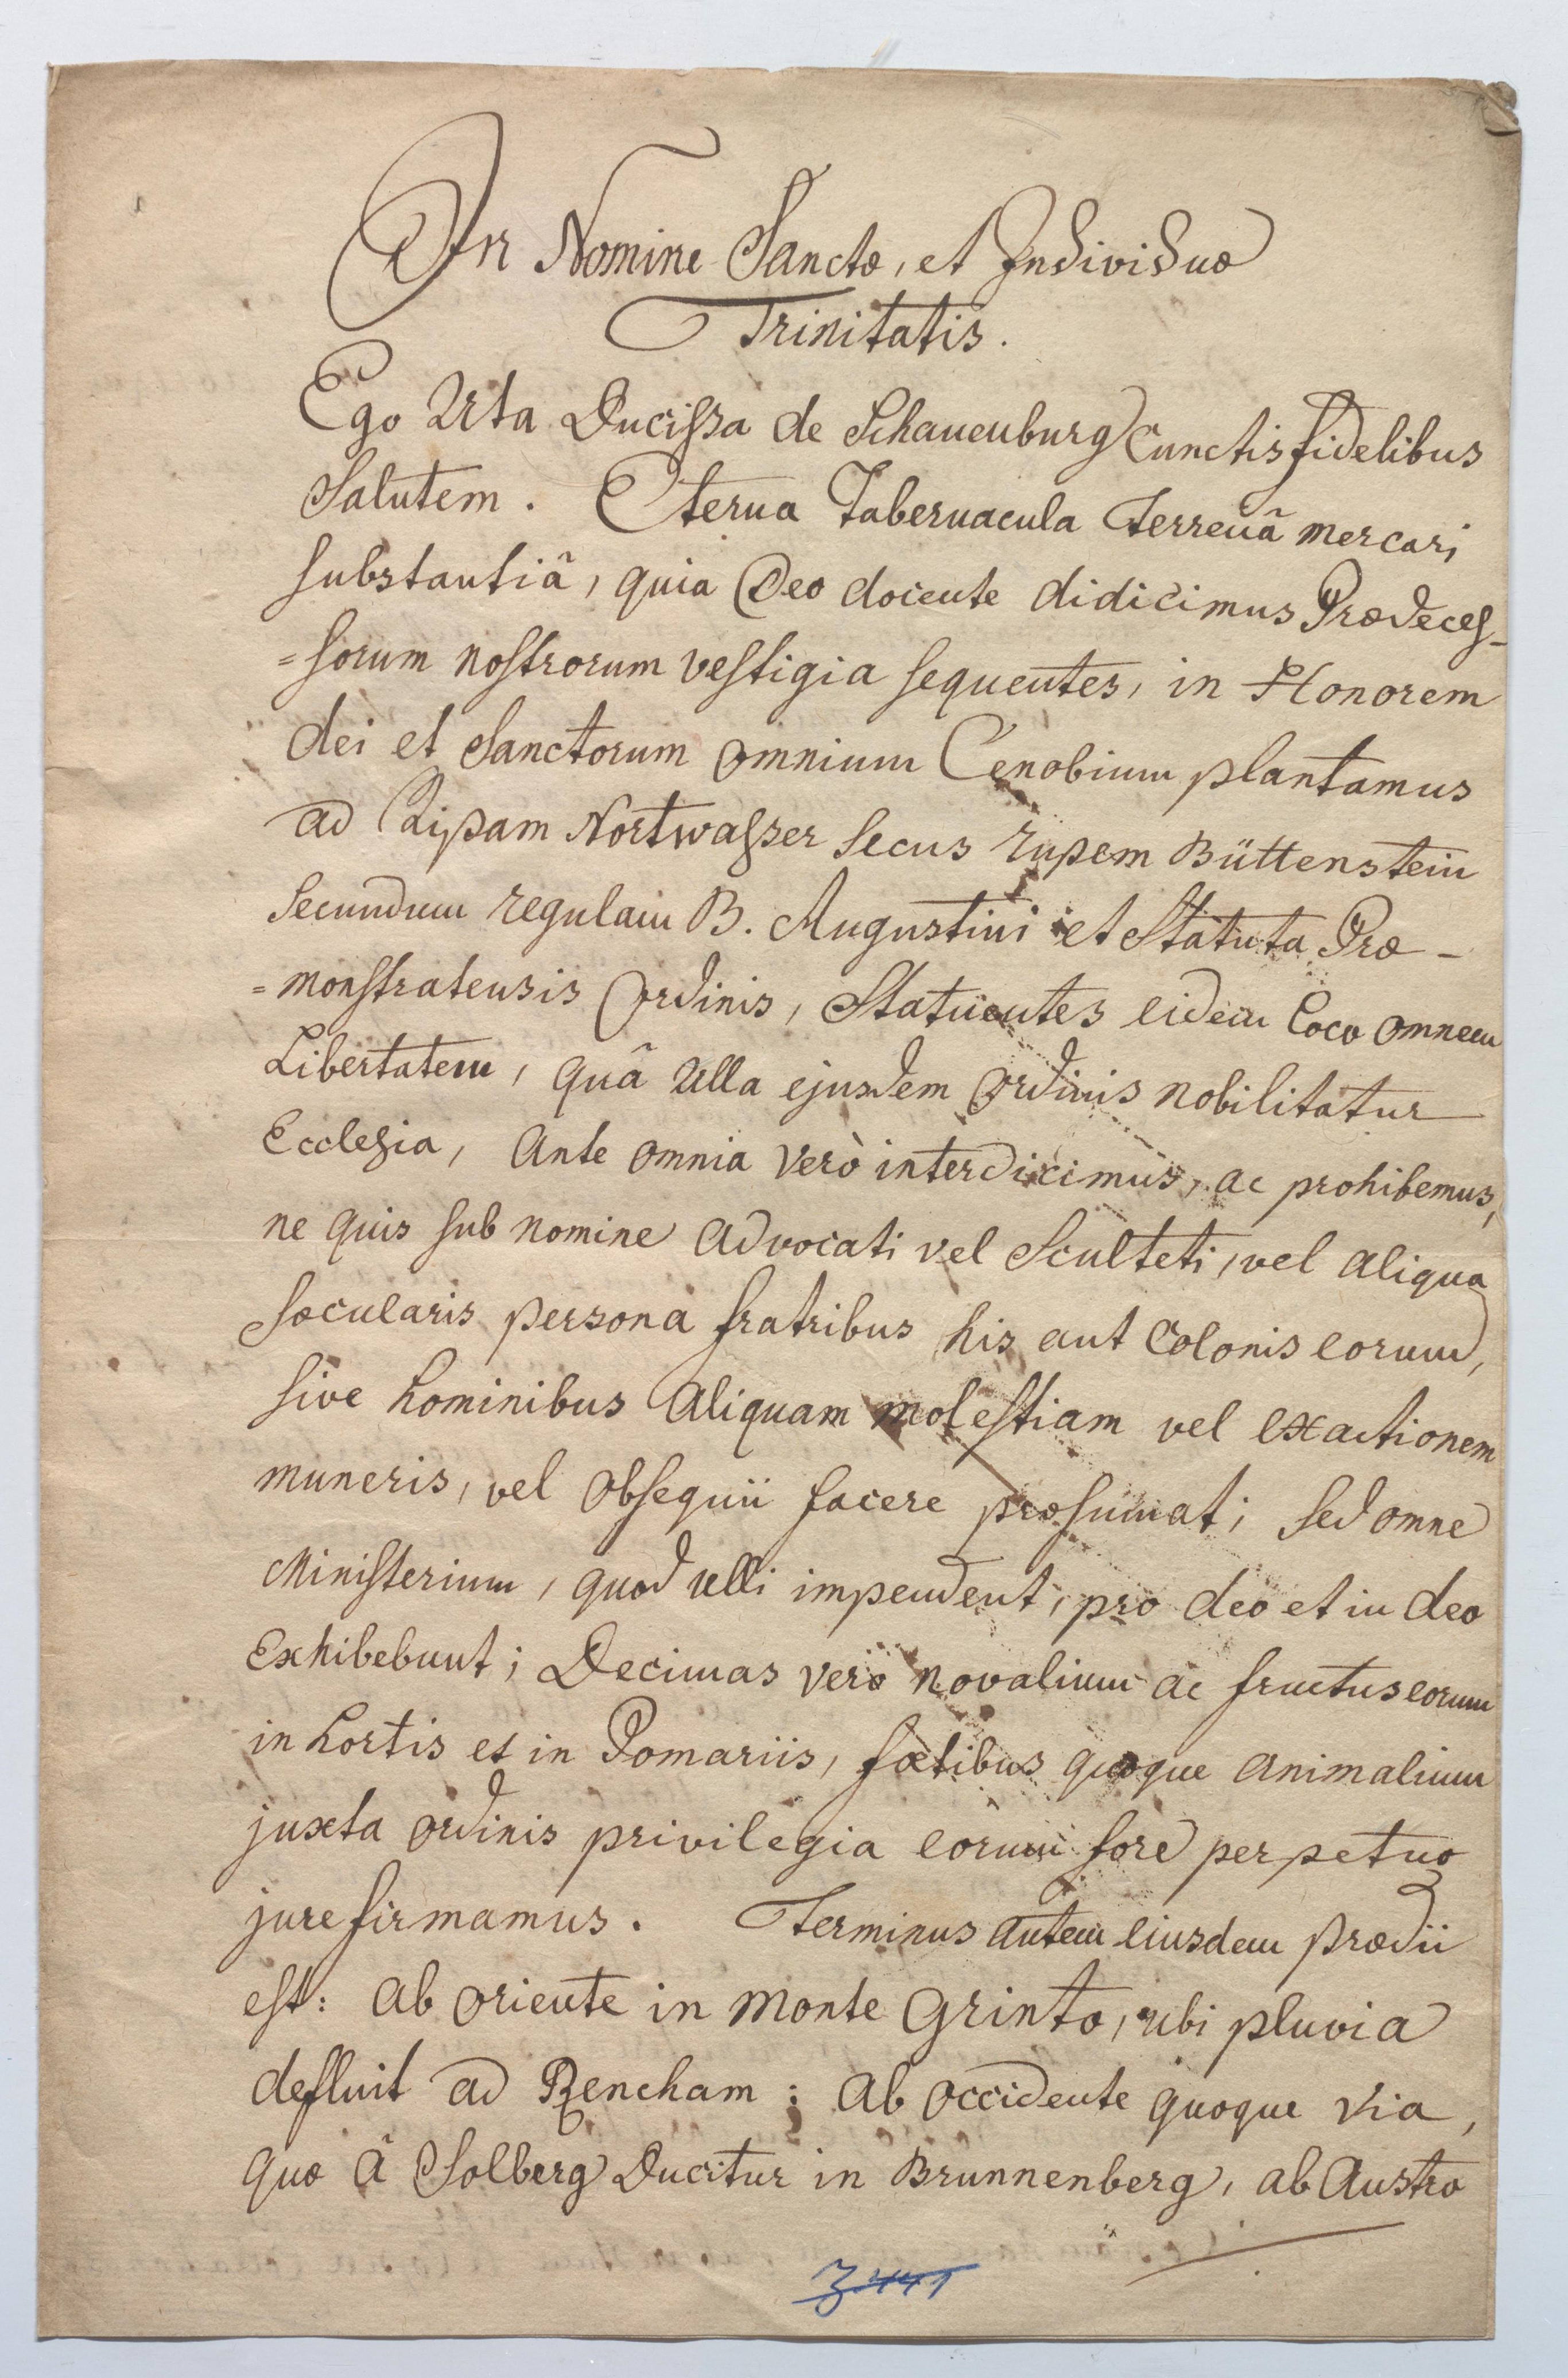 In Nomine Sanctæ, et Individuæ
Trinitatis.
Ego Uta Ducissa de Schauenburg Cunctis fidelibus
Salutem. Eterna Tabernacula Terrenâ mercari
substantiâ, quia Deo docente didicimus Prædeces-
=sorum nostrorum vestigia sequentes, in Honorem
dei et Sanctorum omnium Cenobium plantamus
ad Ripam Nortwasser secus rupem Büttenstein
Secundum regulam B. Augustini et Statuta Præ-
=monstratensis Ordinis, Statuentes eidem Loco omnem
Libertatem, quâ Ulla ejusdem Ordinis nobilitatur
Ecclesia, Ante omnia verò interdicimus, ac prohibemus,
ne quis sub nomine Advocati vel Sculteti, vel aliqua
Sæcularis persona fratribus his aut Colonis eorum,
sive hominibus Aliquam molestiam vel exactionem
muneris, vel obsequii facere præsumat; sed omne
Ministerium, quod ulli impendent, pro deo et in deo
Exhibebunt; Decimas vero novalium ac fructus eorum
in hortis et in Pomariis, fœtibus quoque animalium
juxta ordinis privilegia eorum fore perpetuo
jure firmamus. Terminus autem eiusdem prædii
est: ab oriente in monte Grinto, ubi pluvia
defluit ad Rencham; ab occidente quoque via,
quæ â Solberg Ducitur in Brunnenberg, ab Austro